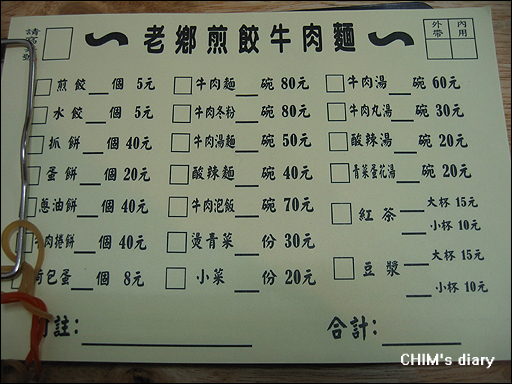 請 號
~ 老鄉煎餃牛肉麵 ~
外帶 內用
煎餃__個 5元 牛肉麵__碗 80元 牛肉湯__碗 60元
水餃__個 5元 牛肉冬粉__碗 80元 牛肉丸湯__碗 30元
抓餅__個 40元 牛肉湯麵__碗 50元 酸辣湯__碗 20元
蛋餅__個 20元 酸辣麵__碗 40元 青菜蛋花湯__碗 20元
蔥油餅__個 40元 牛肉泡飯__碗 70元 紅茶__大杯 15元
__小杯 10元
牛肉捲餅__個 40元 燙青菜__份 30元
荷包蛋__個 8元 小菜__份 20元 豆漿__大杯 15元
__小杯 10元
註:__________ 合計:________
CHIM's diary